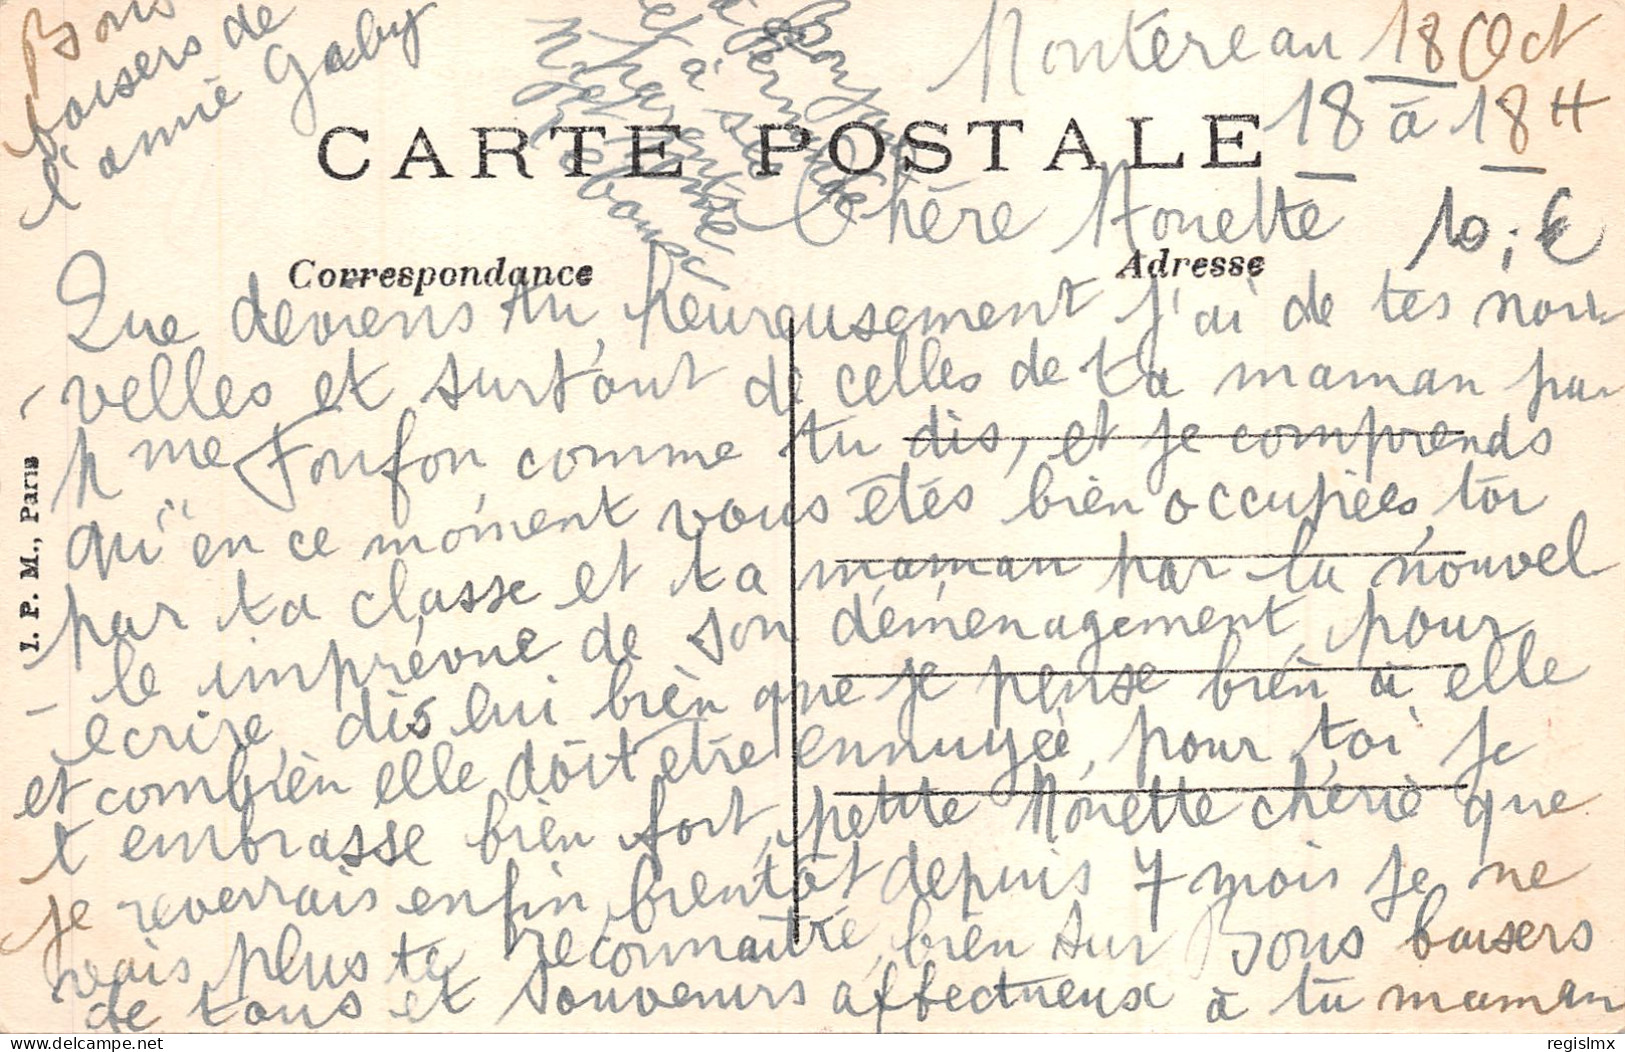 Montereau 18 Oct
18 à 18 H
CARTE POSTALE
Chère Nonette
10,€
Correspondance
Adresse
Que deviens tu, heureusement j'ai de tes nou-
velles et surtout de celles de ta maman par
Mme Foufon, comme tu dis, et je comprends
qu'en ce moment vous étes bien occupées, toi
par ta classe et ta maman par la nouvel
le imprévue de son déménagement, pour
ecrire, dis lui bien que je pense bien à elle
et combien elle doit etre ennuyée, pour toi je
t embrasse bien fort, petite Nonette chérie que
je reverrais enfin bientôt depuis 7 mois je ne
vais plus te reconnaitre, bien sur Bons baisers
de tous et souvenirs affectueux à tu maman
Bonjour
à Germaine
et à sa
charmante
Bons
baisers de
l'amie Gaby
I. P. M., Paris
regislmx